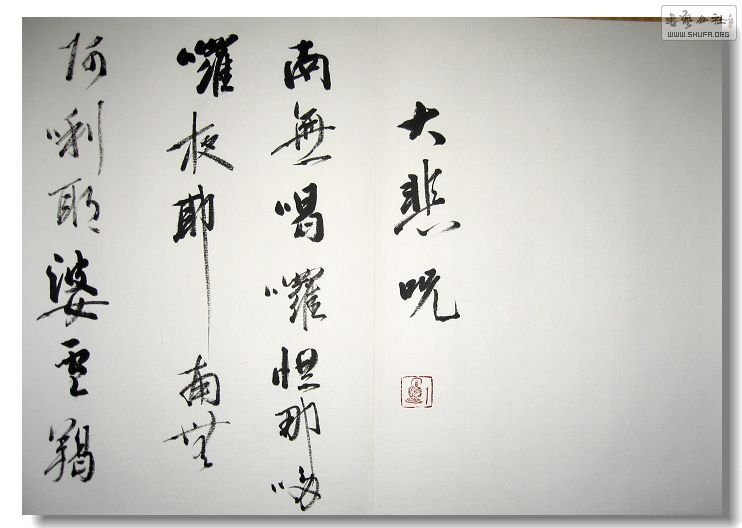 大悲呪
南無喝囉怛那哆
囉夜耶 南無
阿唎耶婆盧羯
书艺公社
WWW.SHUFA.ORG